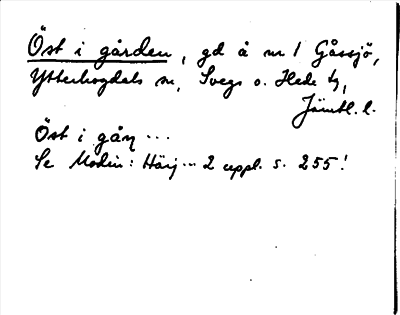 Öst i gården, gd å nr 1 Gåssjö,
Ytterhogdals sn, Svegs o. Hede tg,
Jämtl. l.
Öst i gåŋ ...
Se Modin: Härj... 2 uppl. s. 255!